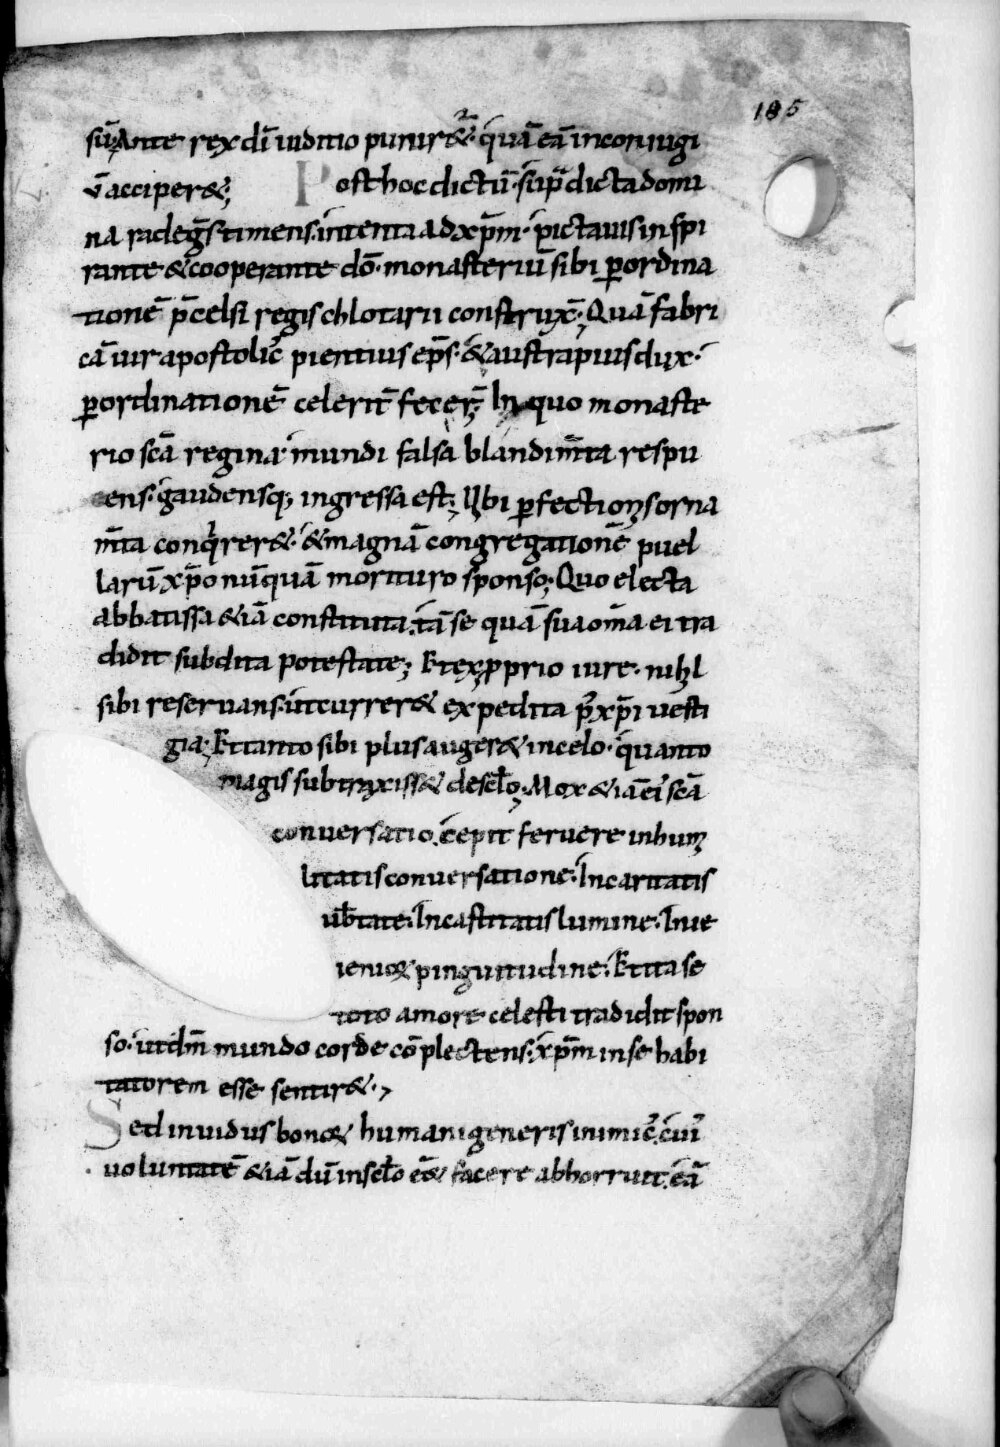 185
sū; Ante rex dī iuditio punir&̄. quā eā in coniugi
ū acciper&; Post hoc dictū. sup̄dicta domi
na radeḡs timens. intenta ad xp̄m. pictauis inspi
rante & cooperante dō. monasteriū sibi ꝑ ordina
tionē p̄celsi regis chlotarii construx̄; Quā fabri
cā uir apostolic̄ pientius ep̄s. & austrapius dux.
ꝑ ordinationē celerit̄ fecer̄; In quo monaste
rio scā regina. mundi falsa blandim̄ta respu
ens. gaudensq; ingressa est; Ubi ꝑfectionis orna
m̄ta conqrer&. & magnā congregationē puel
larū xp̄o nūquā morituro sponso; Quo electa
abbatissa & iā constituta. tā se quā sua om̄a ei tra
didit subdita potestate; Et ex ꝓprio iure. nihil
sibi reseruans. ut currer& expedita p̄ xp̄i uesti
gia; Et tanto sibi plus auger& in celo. quanto
magis subtraxiss& de scl̄o; Mox & iā ei scā
conuersatio. cepit feruere in humi
litatis conuersatione. In caritatis
ub̄tate. In castitatis lumine. In ie
iunio & pinguitudine. Et ita se
toto amore celesti tradidit spon
so. ut dm̄ mundo corde cōplectens. xp̄m in se habi
tatorem esse sentir&.
Sed inuidus bonis humani generis inimic̄. cui
uoluntatē & iā dū in scl̄o eēt facere abhorruit. eā